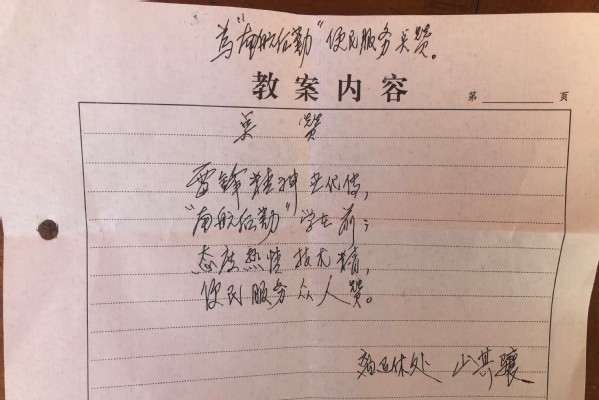 为“南航后勤”便民服务点赞。
教案内容
第 页
点 赞
雷锋精神世代传，
“南航后勤”学在前；
态度热情技术精，
便民服务众人赞。
离退休处 山其骧